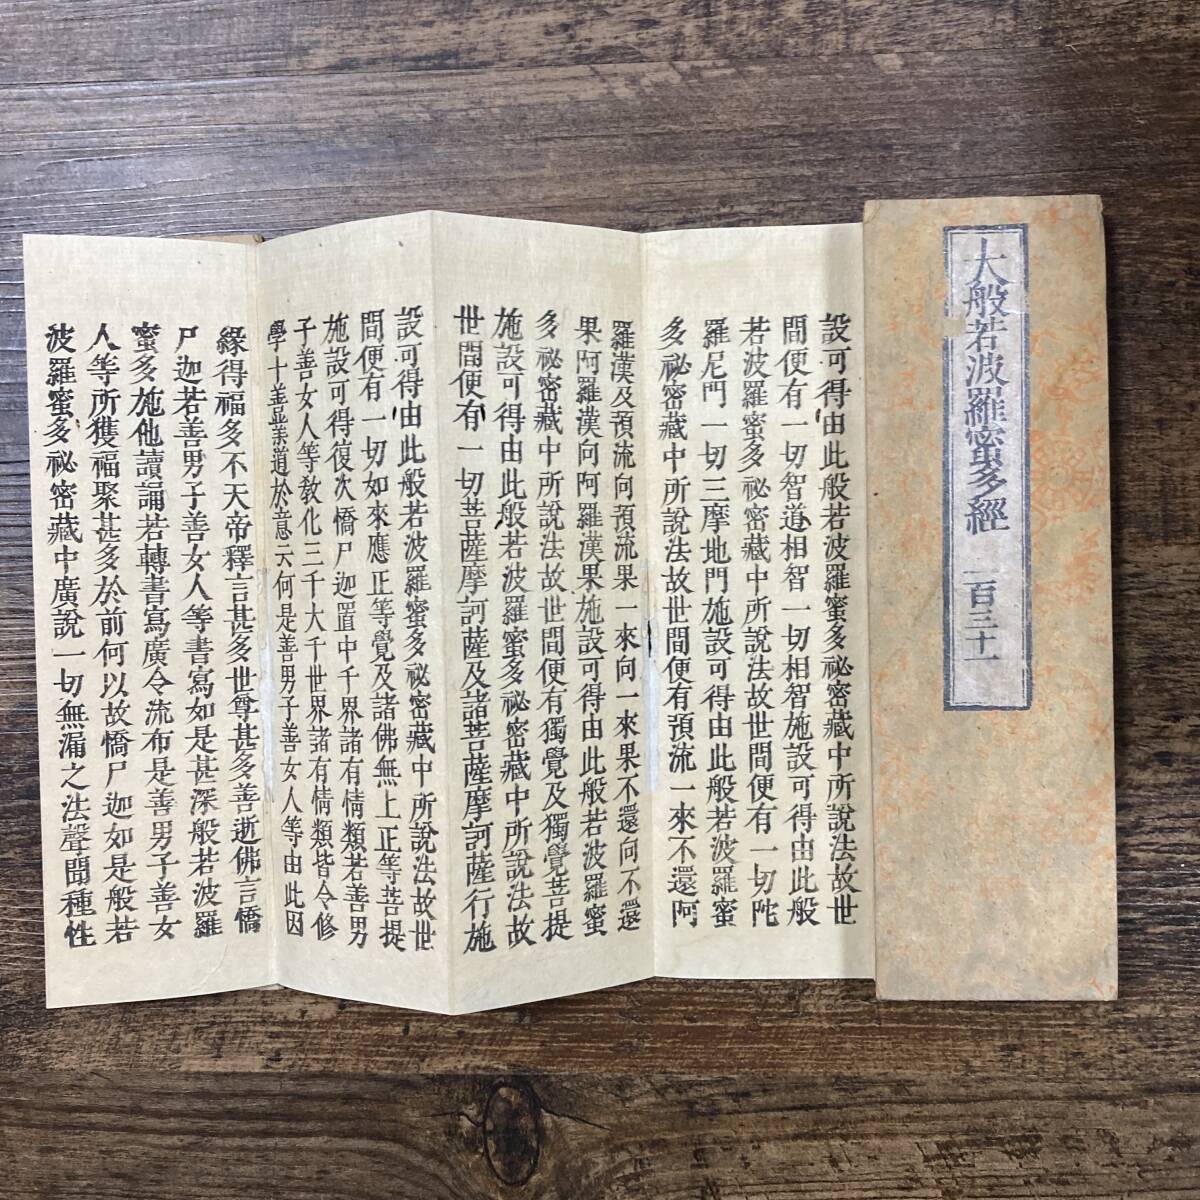 大般若波羅蜜多經 一百三十一
設可得由此般若波羅蜜多祕密藏中所說法故世
間便有一切智道相智一切相智施設可得由此般
若波羅蜜多祕密藏中所說法故世間便有一切陀
羅尼門一切三摩地門施設可得由此般若波羅蜜
多祕密藏中所說法故世間便有預流一來不還阿
羅漢及預流向預流果一來向一來果不還向不還
果阿羅漢向阿羅漢果施設可得由此般若波羅蜜
多祕密藏中所說法故世間便有獨覺及獨覺菩提
施設可得由此般若波羅蜜多祕密藏中所說法故
世間便有一切菩薩摩訶薩及諸菩薩摩訶薩行施
設可得由此般若波羅蜜多祕密藏中所說法故世
間便有一切如來應正等覺及諸佛無上正等菩提
施設可得復次憍尸迦置中千界諸有情類若善男
子善女人等教化三千大千世界諸有情類皆令修
學十善業道於意云何是善男子善女人等由此因
緣得福多不天帝釋言甚多世尊甚多善逝佛言憍
尸迦若善男子善女人等書寫如是甚深般若波羅
蜜多施他讀誦若轉書寫廣令流布是善男子善女
人等所獲福聚甚多於前何以故憍尸迦如是般若
波羅蜜多祕密藏中廣說一切無漏之法聲聞種性